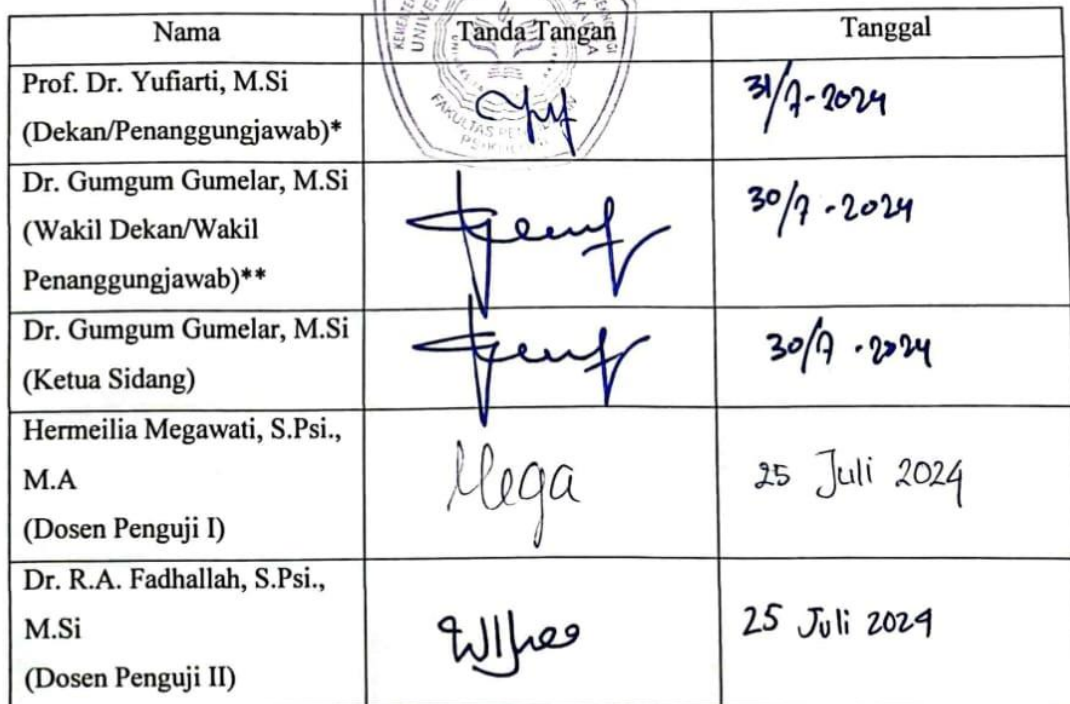 Nama
Tanda Tangan
Tanggal
Prof. Dr. Yufiarti, M.Si
(Dekan/Penanggungjawab)*
31/7-2024
FAKULTAS PENDIDIKAN
PSIKOLOGI
Dr. Gumgum Gumelar, M.Si
(Wakil Dekan/Wakil
Penanggungjawab)**
30/7-2024
Dr. Gumgum Gumelar, M.Si
(Ketua Sidang)
30/7-2024
Hermeilia Megawati, S.Psi.,
M.A
(Dosen Penguji I)
Mega
25 Juli 2024
Dr. R.A. Fadhallah, S.Psi.,
M.Si
(Dosen Penguji II)
25 Juli 2024